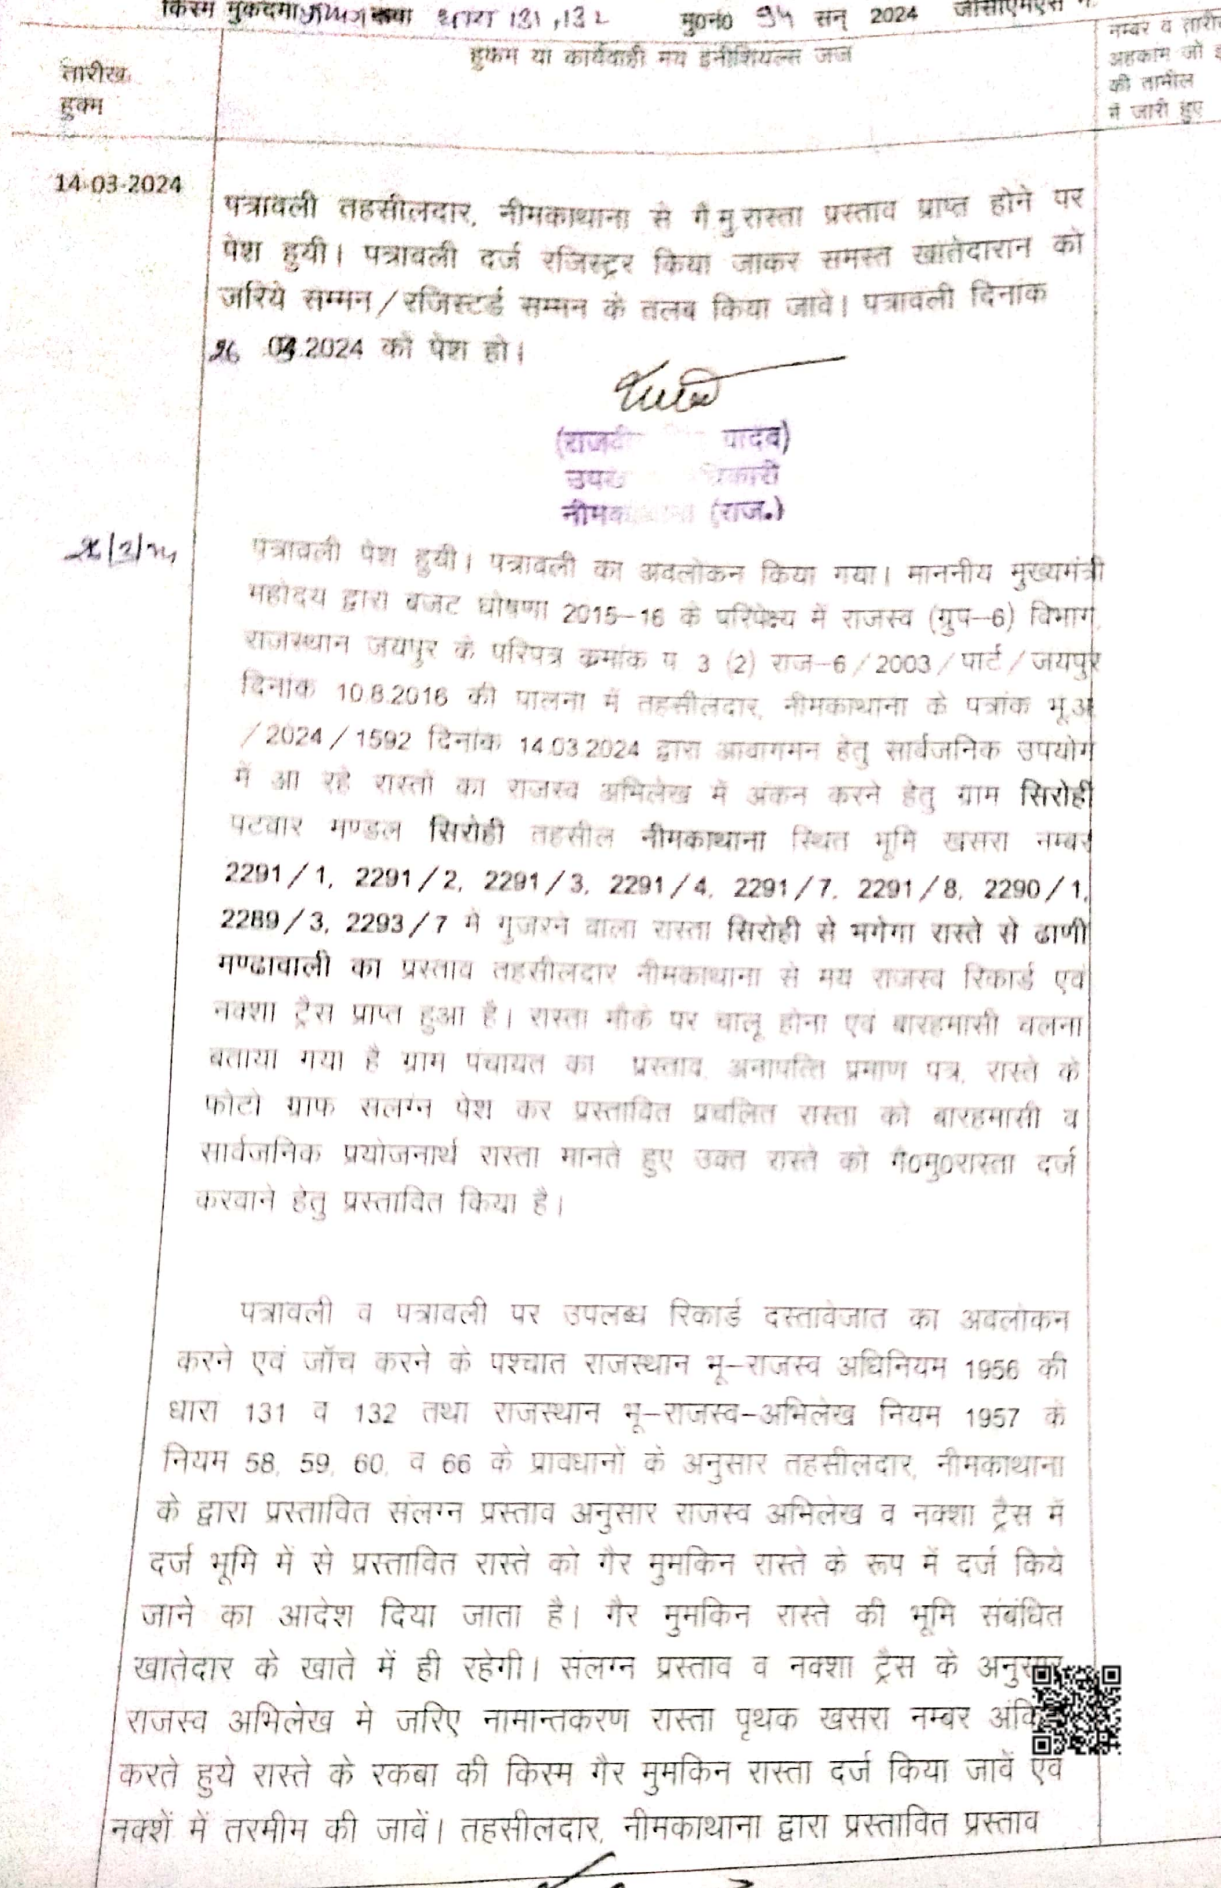 किस्म मुकदमा धारा 131,132 मु0नं0 94 सन् 2024 जीसीएमएस नं
तारीख हुक्म
हुकम या कार्यवाही मय इनीशियल्स जज
नम्बर व तारीख
अहकाम जो इ
की तामील
में जारी हुए
14-03-2024
पत्रावली तहसीलदार, नीमकाथाना से गै.मु.रास्ता प्रस्ताव प्राप्त होने पर
पेश हुयी। पत्रावली दर्ज रजिस्ट्रर किया जाकर समस्त खातेदारान को
जरिये सम्मन/रजिस्टर्ड सम्मन के तलब किया जावे। पत्रावली दिनांक
26 .03.2024 को पेश हो।
यादव)
नीमक (राज.)
26/3/24
पत्रावली पेश हुयी। पत्रावली का अवलोकन किया गया। माननीय मुख्यमंत्री
महोदय द्वारा बजट घोषणा 2015-16 के परिपेक्ष्य में राजस्व (ग्रुप-6) विभाग,
राजस्थान जयपुर के परिपत्र क्रमांक प 3 (2) राज-6/2003/पार्ट/जयपुर
दिनांक 10.8.2016 की पालना में तहसीलदार, नीमकाथाना के पत्रांक भू.अ
/2024/1592 दिनांक 14.03.2024 द्वारा आवागमन हेतु सार्वजनिक उपयोग
में आ रहे रास्तों का राजस्व अभिलेख में अंकन करने हेतु ग्राम सिरोही
पटवार मण्डल सिरोही तहसील नीमकाथाना स्थित भूमि खसरा नम्बर
2291/1, 2291/2, 2291/3, 2291/4, 2291/7, 2291/8, 2290/1,
2289/3, 2293/7 मे गुजरने वाला रास्ता सिरोही से भगेगा रास्ते से ढाणी
मण्ढावाली का प्रस्ताव तहसीलदार नीमकाथाना से मय राजस्व रिकार्ड एवं
नक्शा ट्रैस प्राप्त हुआ है। रास्ता मौके पर चालू होना एवं बारहमासी चलना
बताया गया है ग्राम पंचायत का प्रस्ताव, अनापत्ति प्रमाण पत्र, रास्ते के
फोटो ग्राफ सलग्न पेश कर प्रस्तावित प्रचलित रास्ता को बारहमासी व
सार्वजनिक प्रयोजनार्थ रास्ता मानते हुए उक्त रास्ते को गै0मु0रास्ता दर्ज
करवाने हेतु प्रस्तावित किया है।
पत्रावली व पत्रावली पर उपलब्ध रिकार्ड दस्तावेजात का अवलोकन
करने एवं जॉच करने के पश्चात राजस्थान भू-राजस्व अधिनियम 1956 की
धारा 131 व 132 तथा राजस्थान भू-राजस्व-अभिलेख नियम 1957 के
नियम 58, 59, 60, व 66 के प्रावधानों के अनुसार तहसीलदार, नीमकाथाना
के द्वारा प्रस्तावित संलग्न प्रस्ताव अनुसार राजस्व अभिलेख व नक्शा ट्रैस में
दर्ज भूमि में से प्रस्तावित रास्ते को गैर मुमकिन रास्ते के रूप में दर्ज किये
जाने का आदेश दिया जाता है। गैर मुमकिन रास्ते की भूमि संबंधित
खातेदार के खाते में ही रहेगी। संलग्न प्रस्ताव व नक्शा ट्रैस के अनुसार
राजस्व अभिलेख मे जरिए नामान्तकरण रास्ता पृथक खसरा नम्बर
करते हुये रास्ते के रकबा की किस्म गैर मुमकिन रास्ता दर्ज किया जावें एवं
नक्शें में तरमीम की जावें। तहसीलदार, नीमकाथाना द्वारा प्रस्तावित प्रस्ताव